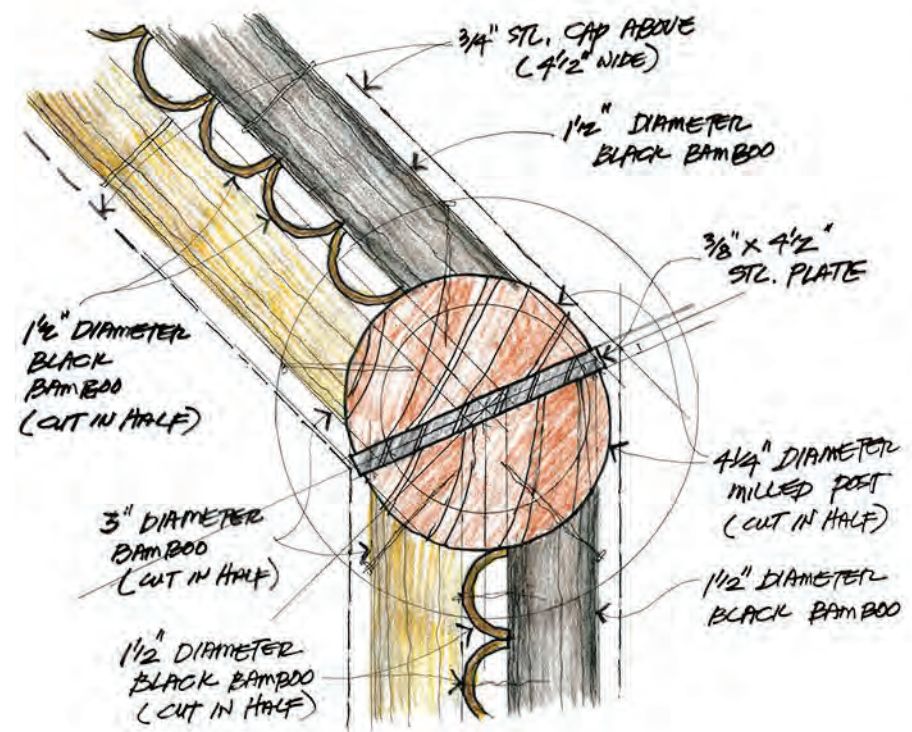 3/4" STL. CAP ABOVE
(4 1/2" WIDE)
1 1/2" DIAMETER
BLACK BAMBOO
3/8" X 4 1/2"
STL. PLATE
1 1/2" DIAMETER
BLACK
BAMBOO
(CUT IN HALF)
4 1/4" DIAMETER
MILLED POST
(CUT IN HALF)
3" DIAMETER
BAMBOO
(CUT IN HALF)
1 1/2" DIAMETER
BLACK BAMBOO
1 1/2" DIAMETER
BLACK BAMBOO
(CUT IN HALF)